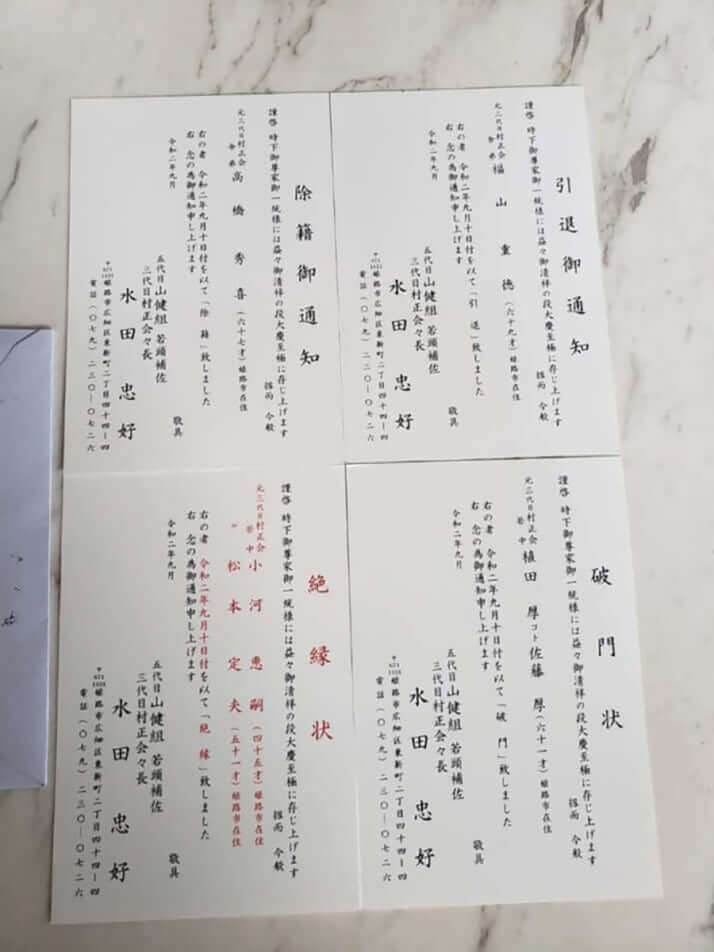 引退御通知
謹啓 時下御尊家御一統様には益々御清祥の段大慶至極に存じ上げます
扨而 今般
元三代目村正会
舎弟 福山重徳(六十九才)姫路市在住
右の者 令和二年九月十日付を以て「引退」致しました
右 念の為御通知申し上げます
敬具
令和二年九月
五代目山健組 若頭補佐
三代目村正会々長
水田忠好
〒671-1153姫路市広畑区東新町二丁目四十四―四
電話(〇七九)二三〇―〇七二六
除籍御通知
謹啓 時下御尊家御一統様には益々御清祥の段大慶至極に存じ上げます
扨而 今般
元三代目村正会
舎弟 高橋秀喜(六十七才)姫路市在住
右の者 令和二年九月十日付を以て「除籍」致しました
右 念の為御通知申し上げます
敬具
令和二年九月
五代目山健組 若頭補佐
三代目村正会々長
水田忠好
姫路市広畑区東新町二丁目四十四―四
電話(〇七九)二三〇―〇七二六
破門状
謹啓 時下御尊家御一統様には益々御清祥の段大慶至極に存じ上げます
扨而 今般
元三代目村正会
若中 植田厚コト佐藤厚(六十一才)姫路市在住
右の者 令和二年九月十日付を以て「破門」致しました
右 念の為御通知申し上げます
敬具
令和二年九月
五代目山健組 若頭補佐
三代目村正会々長
水田忠好
姫路市広畑区東新町二丁目四十四―四
電話(〇七九)二三〇―〇七二六
絶縁状
謹啓 時下御尊家御一統様には益々御清祥の段大慶至極に存じ上げます
扨而 今般
元三代目村正会
若中 小河恵嗣(四十五才)姫路市在住
〃 松本定夫(五十一才)姫路市在住
右の者 令和二年九月十日付を以て「絶縁」致しました
右 念の為御通知申し上げます
敬具
令和二年九月
五代目山健組 若頭補佐
三代目村正会々長
水田忠好
姫路市広畑区東新町二丁目四十四―四
電話(〇七九)二三〇―〇七二六